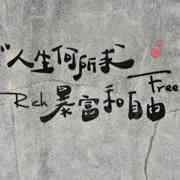 "人生何所求
Rich 暴富和自由 Free